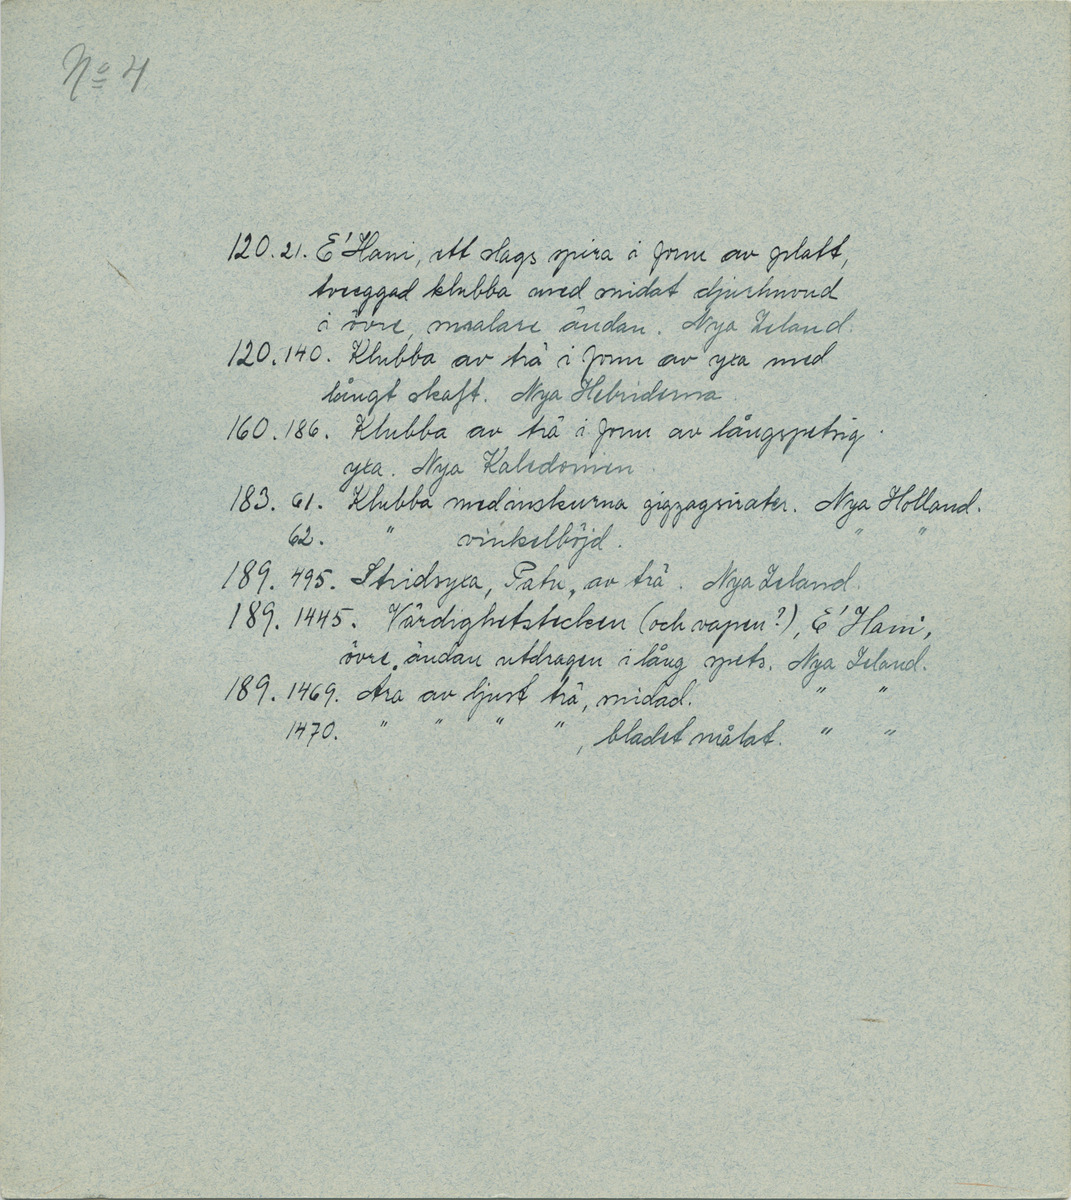 No 4
120. 21. E'Hani, ett slags spira i form av platt,
tveeggad klubba med snidat djurhuvud
i övre, smalare ändan. Nya Zeland.
120. 140. Klubba av trä i form av yxa med
långt skaft. Nya Hebriderna.
160. 186. Klubba av trä i form av långspetsig
yxa. Nya Kaledonien.
183. 61. Klubba med inskurna zigzagsirater. Nya Holland.
62. " vinkelböjd. " "
189. 495. Stridsyxa, Patu, av trä. Nya Zeland.
189. 1445. Värdighetstecken (och vapen?), E'Hani,
övre ändan utdragen i lång spets. Nya Zeland.
189. 1469. Åra av ljust trä, snidad. " "
1470. " " " " , bladet målat. " "